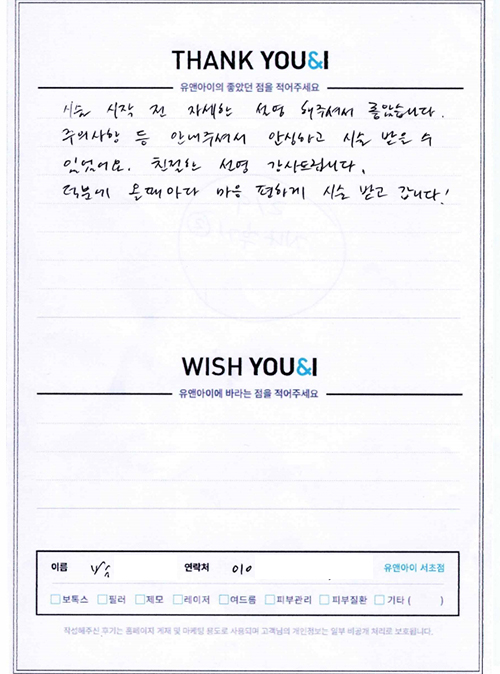 THANK YOU&I
유앤아이의 좋았던 점을 적어주세요
시술 시작 전 자세한 설명 해주셔서 좋았습니다.
주의사항 등 안내주셔서 안심하고 시술 받을 수
있었어요. 친절한 설명 감사드립니다.
덕분에 올때마다 마음 편하게 시술 받고 갑니다!
WISH YOU&I
유앤아이에 바라는 점을 적어주세요
이름 연락처 010 유앤아이 서초점
보톡스 필러 제모 레이저 여드름 피부관리 피부질환 기타 ( )
작성해주신 후기는 홈페이지 게재 및 마케팅 용도로 사용되며 고객님의 개인정보는 일부 비공개 처리로 보호됩니다.